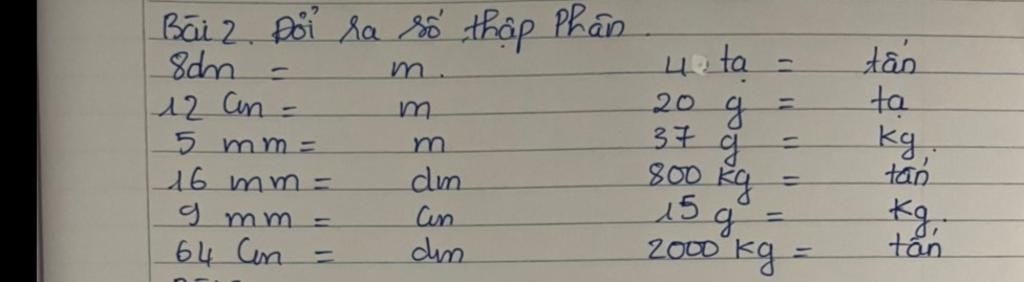 Bài 2. Đổi ra số thập phân.
8dm = m. 4 tạ = tấn
12 cm = m 20 g = tạ
5 mm = m 37 g = kg.
16 mm = dm 800 kg = tấn
9 mm = cm 15 g = kg.
64 cm = dm 2000 kg = tấn